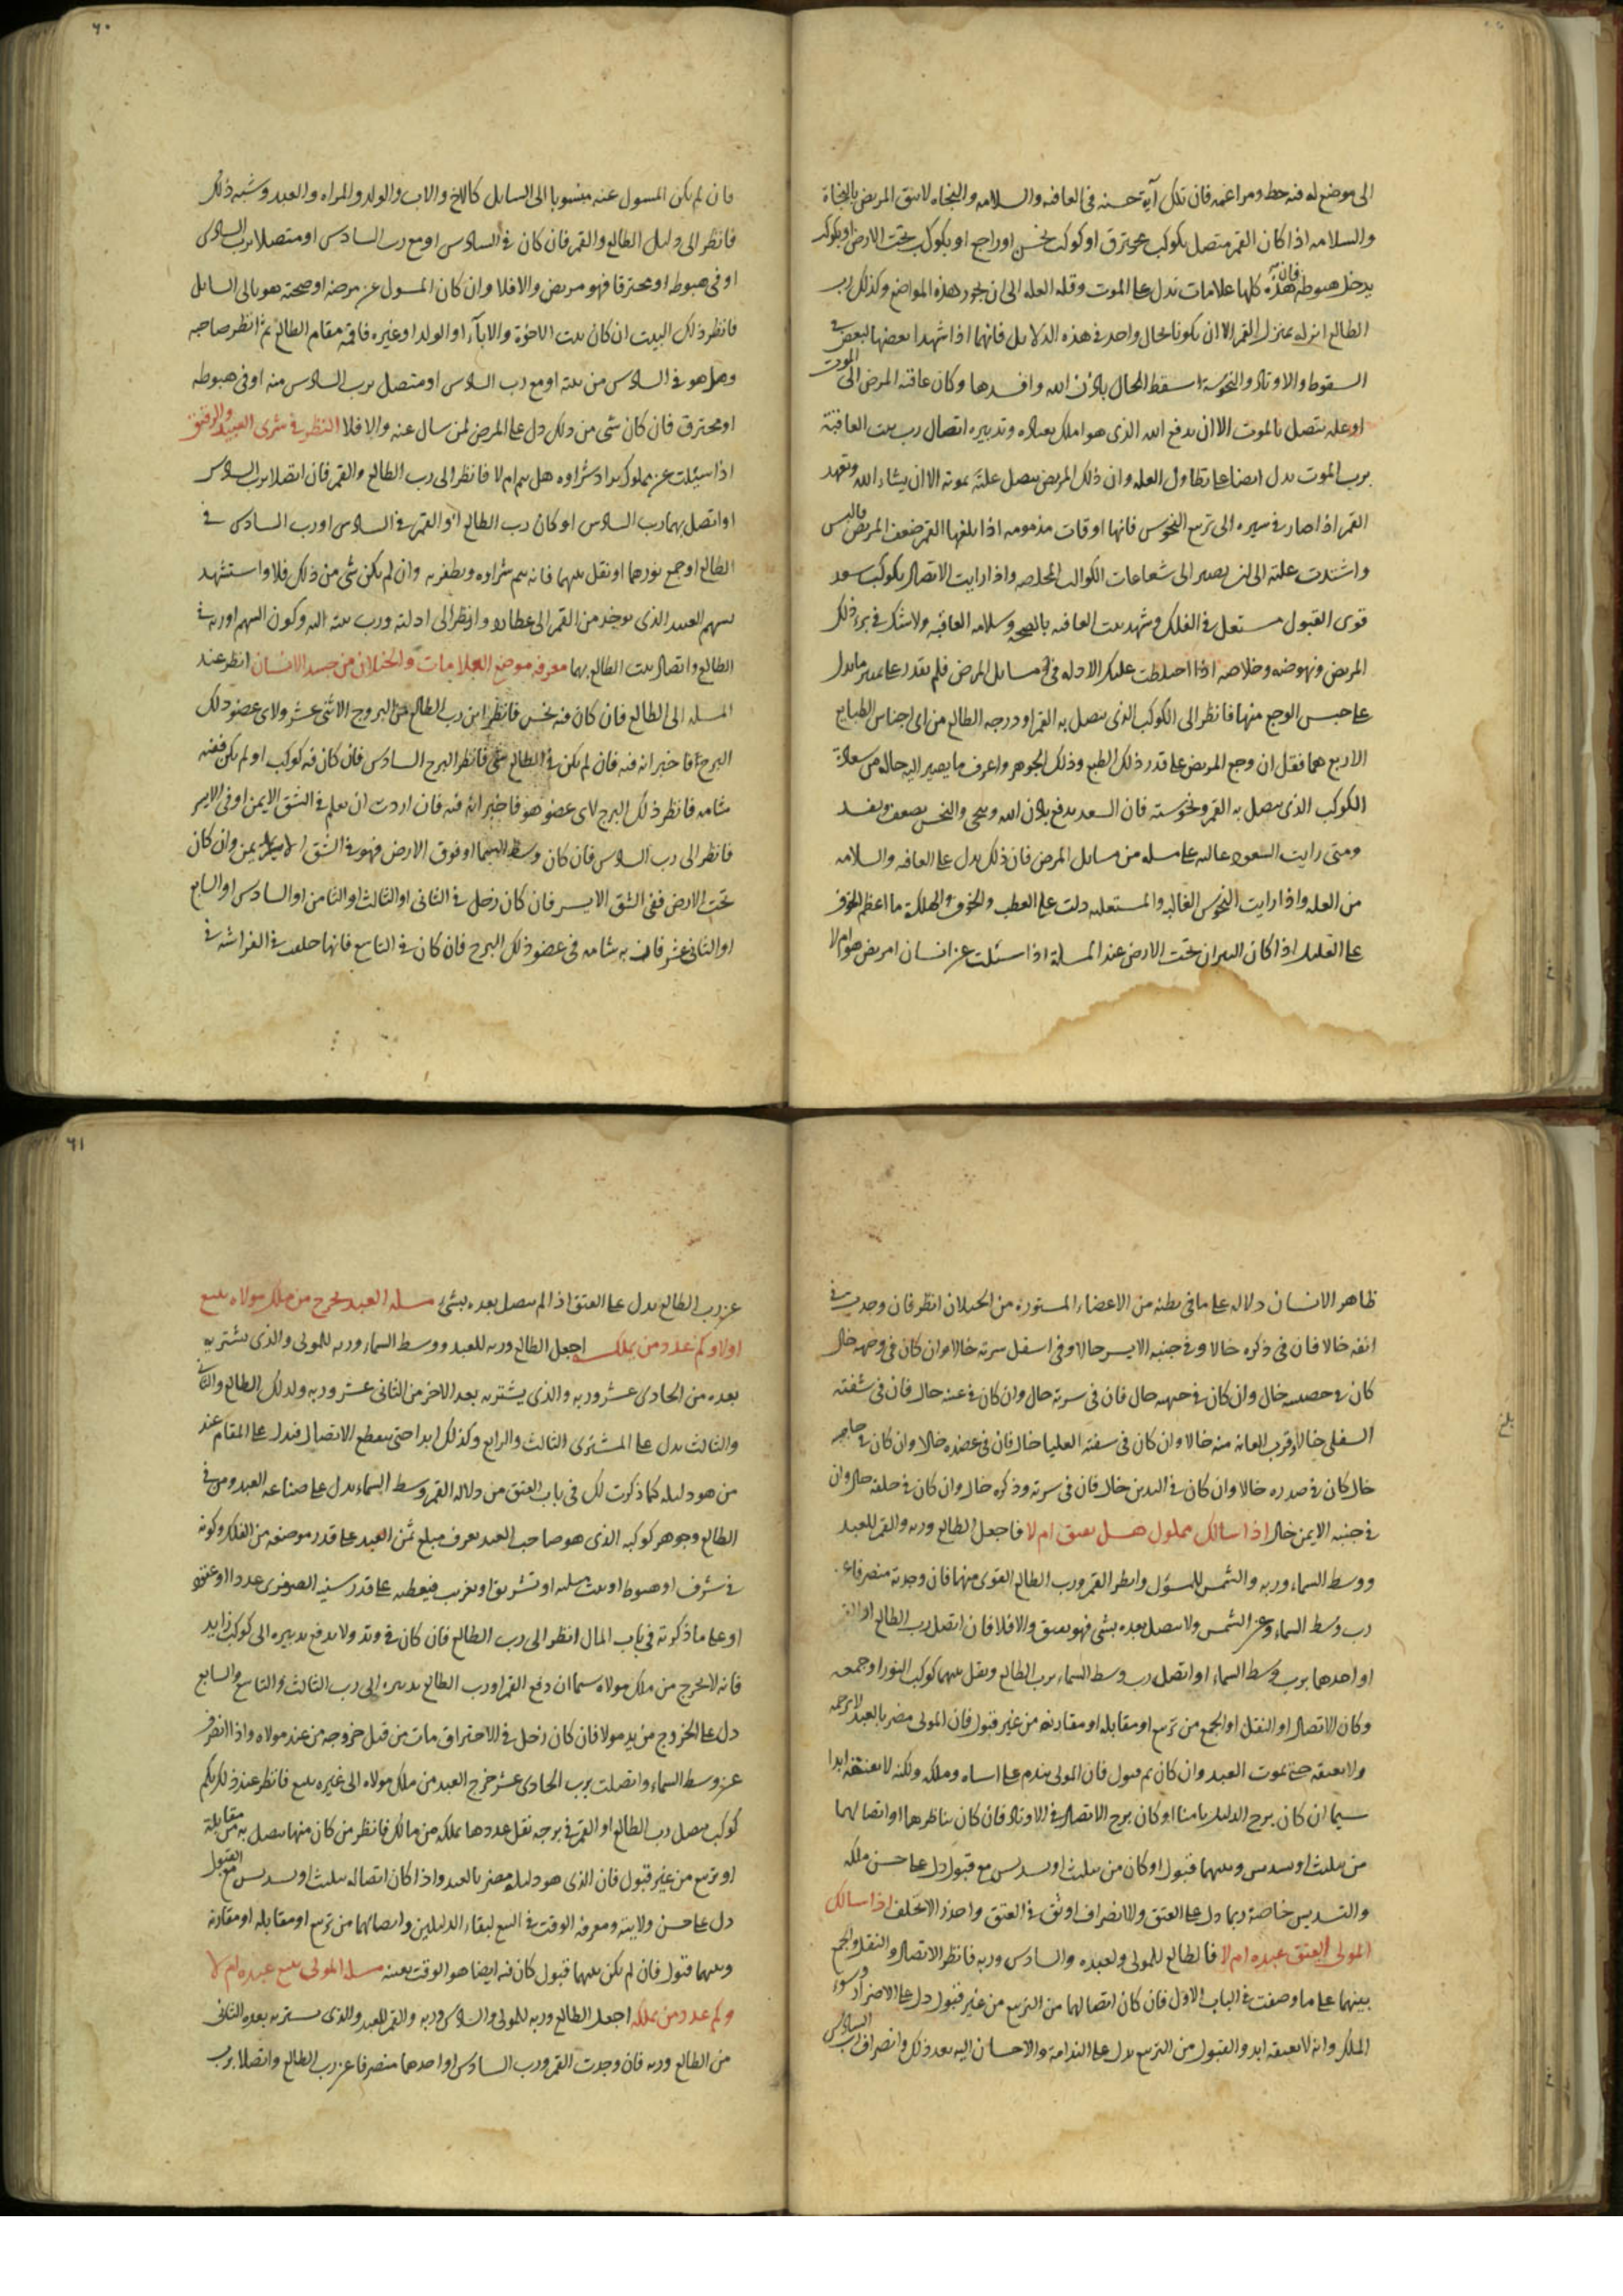 الى موضع له فيه حظ ومراغمه فان تلك آية حسنه فى العافيه والسلامه والنجاه لا تيق المريض بالنجاة
والسلامه اذا كان القمر متصل بكوكب محترق او كوكب نحس او راجع او بكوكب تحت الارض او بكوكب
يدخل هبوطه فان هذه كلها علامات تدل على الموت وقله العله الى ان يجوز هذه المواضع وكذلك رب
الطالع انزله بمنزل القمر الا ان يكونا بحال واحد فى هذه الدلايل فانهما اذا شهدا بعضها لبعض فى
السقوط والاوتاد والنحوسة سقط الحال باذن الله وافسدها وكان عاقبه المرض الى الموت
او عله تتصل بالموت الا ان يدفع الله الذى هو املك بعباده وتدبيره اتصال رب بيت العاقبة
برب الموت يدل ايضا على تطاول العله وان ذلك المريض يتصل علته بموته الا ان يشاء الله وتعهد
القمر اذا صار فى سيره الى تربيع النحوس فانها اوقات مذمومه اذا بلغها القمر ضعف المريض والبس
واشتدت علته الى ان يصير الى شعاعات الكواكب المخلصه واذا رايت الاتصال بكوكب سعد
قوى القبول مستعل فى الفلك وشهد بيت العاقبه بالصحه وسلامه العاقبه ولا تشك فى برء ذلك
المريض ونهوضه وخلاصه اذا اختلطت عليك الادله فى مسايل المرض فلم تقدر على تميز ما يدل
على جنس الوجع منها فانظر الى الكوكب الذى يتصل به القمر او درجه الطالع من اى اجناس الطبايع
الاربع هما فقل ان وجع المريض على قدر ذلك الطبع وذلك الجوهر واعرف ما يصير اليه حاله من سعادة
الكوكب الذى يتصل به القمر ونحوسته فان السعد يدفع باذن الله وينجى والنحس يضعف ويفسد
ومتى رايت السعود عاليه على مسله من مسايل المرض فان ذلك يدل على العافيه والسلامه
من العله واذا رايت النحوس الغالبه والمستعليه دلت على العطب والخوف والهلكة ما اعظم الخوف
على العليل اذا كان النيران تحت الارض عند المسلة اذا سئلت عن انسان امريض هو ام لا
فان لم يكن المسول عنه منسوبا الى السايل كالاخ والاب والولد والمراه والعبد وشبه ذلك
فانظر الى دليل الطالع والقمر فان كان فى السادس او مع رب السادس او متصلا برب السادس
او فى هبوطه او محترقا فهو مريض والا فلا وان كان المسول عن مرضه او صحته هو يالى السايل
فانظر ذلك البيت ان كان بيت الاخوة والاباء او الولد او غيره فاقمه مقام الطالع ثم انظر صاحبه
وهل هو فى السادس من بيته او مع رب السادس او متصل برب السادس منه او فى هبوطه
او محترق فان كان شى من ذلك دل على المرض لمن سال عنه والا فلا النظر فى شرى العبيد والرقيق
اذا سئلت عن مملوك يراد شراوه هل يتم ام لا فانظر الى رب الطالع والقمر فان اتصلا برب السادس
او اتصل بهما رب السادس او كان رب الطالع او القمر فى السادس او رب السادس فى
الطالع او جمع نورهما او نقل بينهما فانه يتم شراوه ويظفر به وان لم يكن شى من ذلك فلا واستشهد
بسهم العبيد الذى يوخذ من القمر الى عطارد وانظر الى ادلته ورب بيته اليه وكون السهم او ربه فى
الطالع واتصال بيت الطالع بهما معرفه موضع العلامات والخيلان من جسد الانسان انظر عند
المسله الى الطالع فان كان فيه نحس فانظر اين رب الطالع من البروج الاثنى عشر ولاى عضو ذلك
البرج فاخبر انه فيه فان لم يكن فى الطالع شى فانظر البرج السادس فان كان فيه كوكب او لم يكن ففيه
شامه فانظر ذلك البرج لاى عضو هو فاخبر انه فيه فان اردت ان تعلم فى الشق الايمن او فى الايسر
فانظر الى رب السادس فان كان وسط السما او فوق الارض فهو فى الشق الايمن وان كان
تحت الارض ففى الشق الايسر فان كان زحل فى الثانى او الثالث او الثامن او السادس او السابع
او الثانى عشر فان به شامه فى عضو ذلك البرج فان كان فى التاسع فانها خلعت فى الفراشه فى
ظاهر الانسان دلاله على ما فى بطنه من الاعضاء المستوره من الخيلان انظر فان وجدت فى
انفه خالا فان فى ذكره خالا وفى جنبه الايسر خالا وفى اسفل سرته خالا وان كان فى وجهه خال
كان فى خصيه خال وان كان فى جبهه خال فان فى سرته خال وان كان فى عينه خال فان فى شفته
السفلى خالا وقرب العانه منه خالا وان كان فى شفته العليا خال فان فى عضده خالا وان كان فى حاجبه
خال كان فى صدره خالا وان كان فى اليدين خال فان فى سرته وذكره خال وان كان فى حلقه خال وان
فى جنبه الايمن خال اذا سالك مملوك هل يعتق ام لا فاجعل الطالع وربه والقمر للعبد
ووسط السماء وربه والشمس للمسؤل وانظر القمر ورب الطالع القوى منهما فان وجدته منصرفا عن
رب وسط السماء وعن الشمس ولا يتصل بعده بشى فهو يعتق والا فلا فان اتصل رب الطالع او القمر
او احدهما برب وسط السماء او اتصل رب وسط السماء برب الطالع ونقل بينهما كوكب النور او جمعه
وكان الاتصال او النقل او الجمع من تربيع او مقابله او مقارنه من غير قبول فان المولى مضر بالعبد لا يرحمه
ولا يعتقه حتى يموت العبد وان كان ثم قبول فان المولى يندم على اساه وملكه ولكنه لا يعتقه ابدا
سيما ان كان برج الدليل ثابتا او كان برج الاتصال فى الاوتاد فان كان يناظرهما او اتصالهما
من تثليث او تسديس وبينهما قبول او كان من تثليث او تسديس مع قبول دل على حسن ملكه
والتسديس خاصة ربما دل على العتق والانصراف اوثق فى العتق واحذر الانخلف اذا سالك
المولى ايعتق عبده ام لا فالطالع للمولى ولعبده والسادس وربه فانظر الاتصال والنقل والجمع
بينهما على ما وصفت فى الباب الاول فان كان اتصالهما من التربيع من غير قبول دل على الاضرار وسوء
الملك وانه لا يعتقه ابد والقبول من التربيع يدل على الندامة والاحسان اليه بعد ذلك وانصراف رب السادس
عن رب الطالع يدل على العتق اذا لم يتصل بعده بشى مسله العبد يخرج من ملك مولاه ببيع
اولا وكم عدد من يملكه اجعل الطالع وربه للعبد ووسط السماء وربه للمولى والذى يشتريه
بعده من الحادى عشر وربه والذى يشتريه بعد الاخر من الثانى عشر وربه وكذلك الطالع والثانى
والثالث يدل على المشترى الثالث والرابع وكذلك ابدا حتى ينقطع الاتصال فيدل على المقام عند
من هو دليله كما ذكرت لك فى باب العتق من دلاله القمر وسط السماء يدل على صناعه العبد ومن فى
الطالع وجوهر كوكبه الذى هو صاحب العبد يعرف مبلغ ثمن العبد على قدر موضعه من الفلك وكونه
فى شرف او هبوط او بيت مثله او تشريق او تغريب فيعطيه على قدر سنيه الصغرى عددا او عشره
او على ما ذكرته فى باب المال انظر الى رب الطالع فان كان فى وتد ولا يدفع تدبيره الى كوكب زايد
فانه لا يخرج من ملك مولاه سيما ان دفع القمر او رب الطالع تدبيره الى رب الثالث والتاسع والسابع
دل على الخروج من يد مولا فان كان دخل فى الاحتراق مات من قبل خروجه من عند مولاه واذا انصرف
عن وسط السماء واتصلت برب الحادى عشر خرج العبد من ملك مولاه الى غيره ببيع فانظر عند ذلك بكم
كوكب يتصل رب الطالع او القمر فى برجه نقل عددها يملكه من مالك فانظر من كان منها يتصل به من مقابلة
او تربيع من غير قبول فان الذى هو دليله مضر بالعبد واذا كان اتصاله بتثليث او تسديس مع القبول
دل على حسن ولايته ومعرفه الوقت فى البيع لبقاء الدليلين واتصالهما من تربيع او مقابله او مقارنة
وبينهما قبول فان لم يكن بينهما قبول كان فيه ايضا هو الوقت بعينه مسله المولى يبيع عبده ام لا
وكم عدد من يملكه اجعل الطالع وربه للمولى والسادس وربه والقمر للعبد والذى يشتريه بعده الثانى
من الطالع وربه فان وجدت القمر ورب السادس او احدهما منصرفا عن رب الطالع واتصلا برب
٦٠
٦١
بلغ